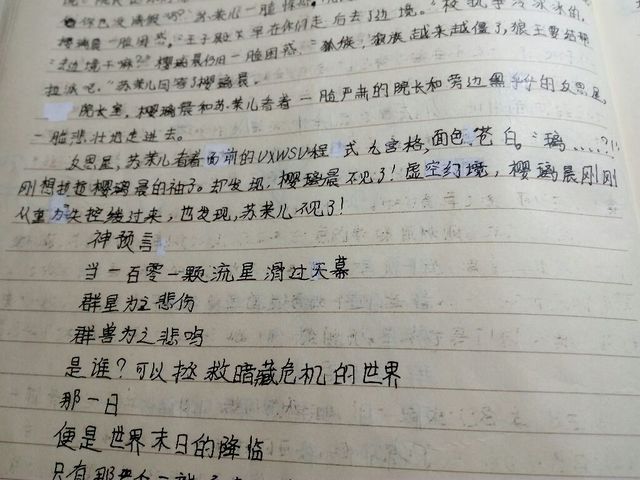 你已没满假吗?"苏莱儿一脸惊
樱璃晨一脸困惑。"王子殿下早在你们走后去了边境。"校
"去边境干嘛?"樱璃晨仍旧一脸困惑。"狐族,狼族越来越僵了,狼王要结
拉派吧。"苏莱儿回答了樱璃晨。
院长室,樱璃晨和苏莱儿看着一脸严肃的院长和旁边黑乎乎的女思星,
一脸悲壮地走进去。
女思星,苏莱儿看着面前的UXWSV程式九宫格,面色苍白。"璃……?!"
刚想拉拉樱璃晨的袖子。却发现,樱璃晨不见了!虚空幻境,樱璃晨刚刚
从重力失控缓过来,也发现,苏莱儿不见了!
神预言
当一百零一颗流星滑过天幕
群星为之悲伤
群兽为之悲鸣
是谁?可以拯救暗藏危机的世界
那一日
便是世界末日的降临
只有那